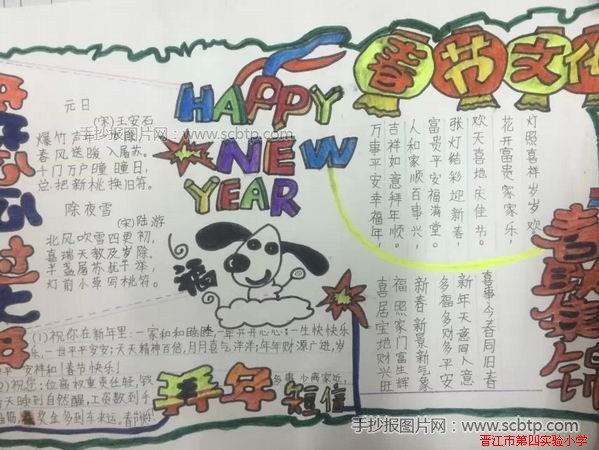 开开心心过大年
元日
(宋)王安石
爆竹声
春风送暖入屠苏。
千门万户曈曈日，
总把新桃换旧符。
除夜雪
(宋)陆游
北风吹雪四更初，
嘉瑞天教及岁除。
半盏屠苏犹未举，
灯前小草写桃符。
HAPPY
NEW
YEAR
福
春节文化
灯照喜祥岁岁欢
花开富贵家家乐，
欢天喜地庆佳节。
张灯结彩迎新春，
富贵平安福满堂。
人和家顺百事兴，
吉祥如意拜年顺。
万事平安幸福年，
春联集锦
喜事今春同旧春
新年天意同人意
多福多财多平安
新春新景新气象
福照家门富生辉
喜居宝地财兴旺
(1)祝你在新年里：一家和和睦睦，一年开开心心；一生快快乐
乐，一世平平安安；天天精神百倍，月月喜气洋洋；年年财源广进，岁
平安祥和！春节快乐！
祝您：位高权重责任轻，钱
天睡到自然醒，工资数到手
拜年短信
手抄报图片网 - www.scbtp.com
手抄报图片网：www.scbtp.com
晋江市第四实验小学